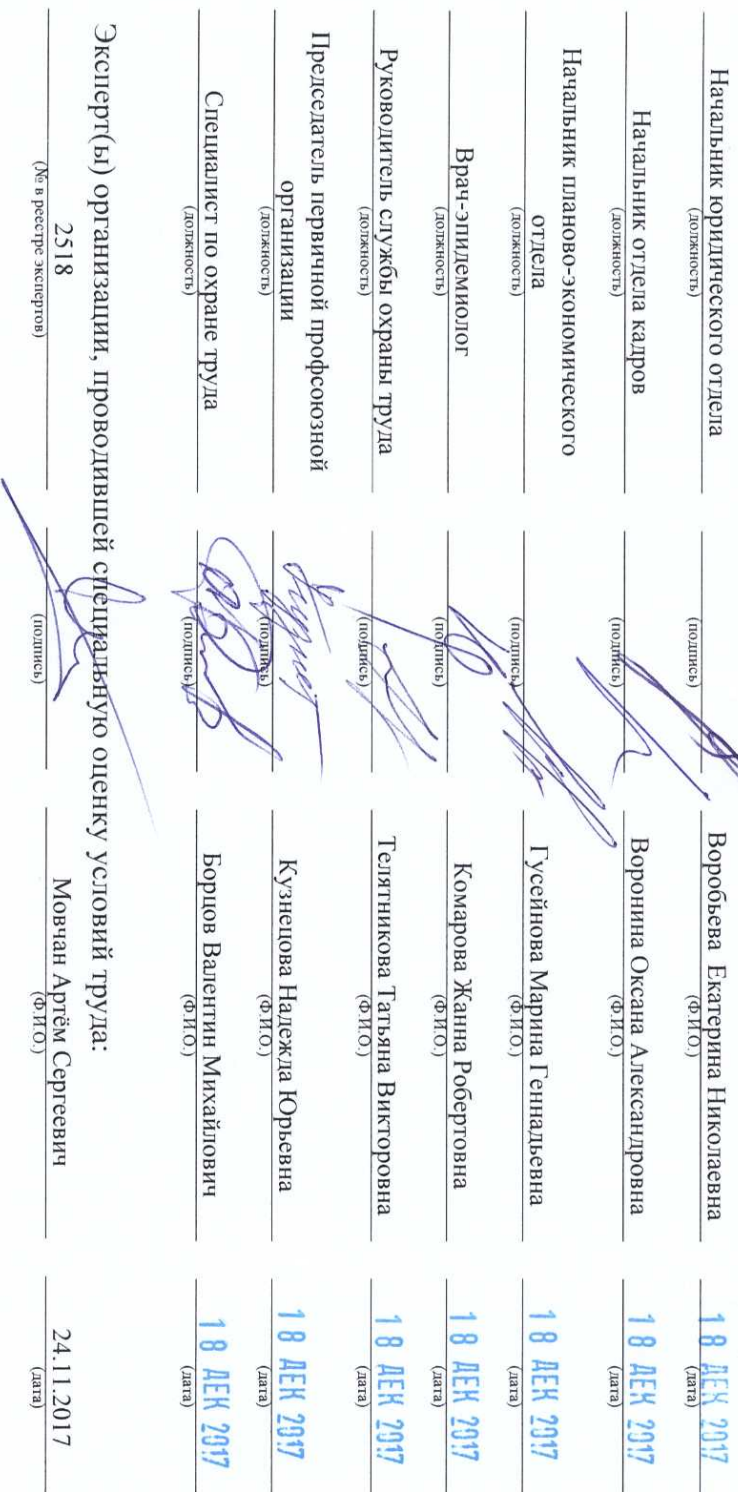 Начальник юридического отдела Воробьева Екатерина Николаевна 18 ДЕК 2017
(должность) (подпись) (Ф.И.О.) (дата)
Начальник отдела кадров Воронина Оксана Александровна 18 ДЕК 2017
(должность) (подпись) (Ф.И.О.) (дата)
Начальник планово-экономического
отдела Гусейнова Марина Геннадьевна 18 ДЕК 2017
(должность) (подпись) (Ф.И.О.) (дата)
Врач-эпидемиолог Комарова Жанна Робертовна 18 ДЕК 2017
(должность) (подпись) (Ф.И.О.) (дата)
Руководитель службы охраны труда Телятникова Татьяна Викторовна 18 ДЕК 2017
(должность) (подпись) (Ф.И.О.) (дата)
Председатель первичной профсоюзной
организации Кузнецова Надежда Юрьевна 18 ДЕК 2017
(должность) (подпись) (Ф.И.О.) (дата)
Специалист по охране труда Борцов Валентин Михайлович 18 ДЕК 2017
(должность) (подпись) (Ф.И.О.) (дата)
Эксперт(ы) организации, проводившей специальную оценку условий труда:
2518 Мовчан Артём Сергеевич 24.11.2017
(№ в реестре экспертов) (подпись) (Ф.И.О.) (дата)